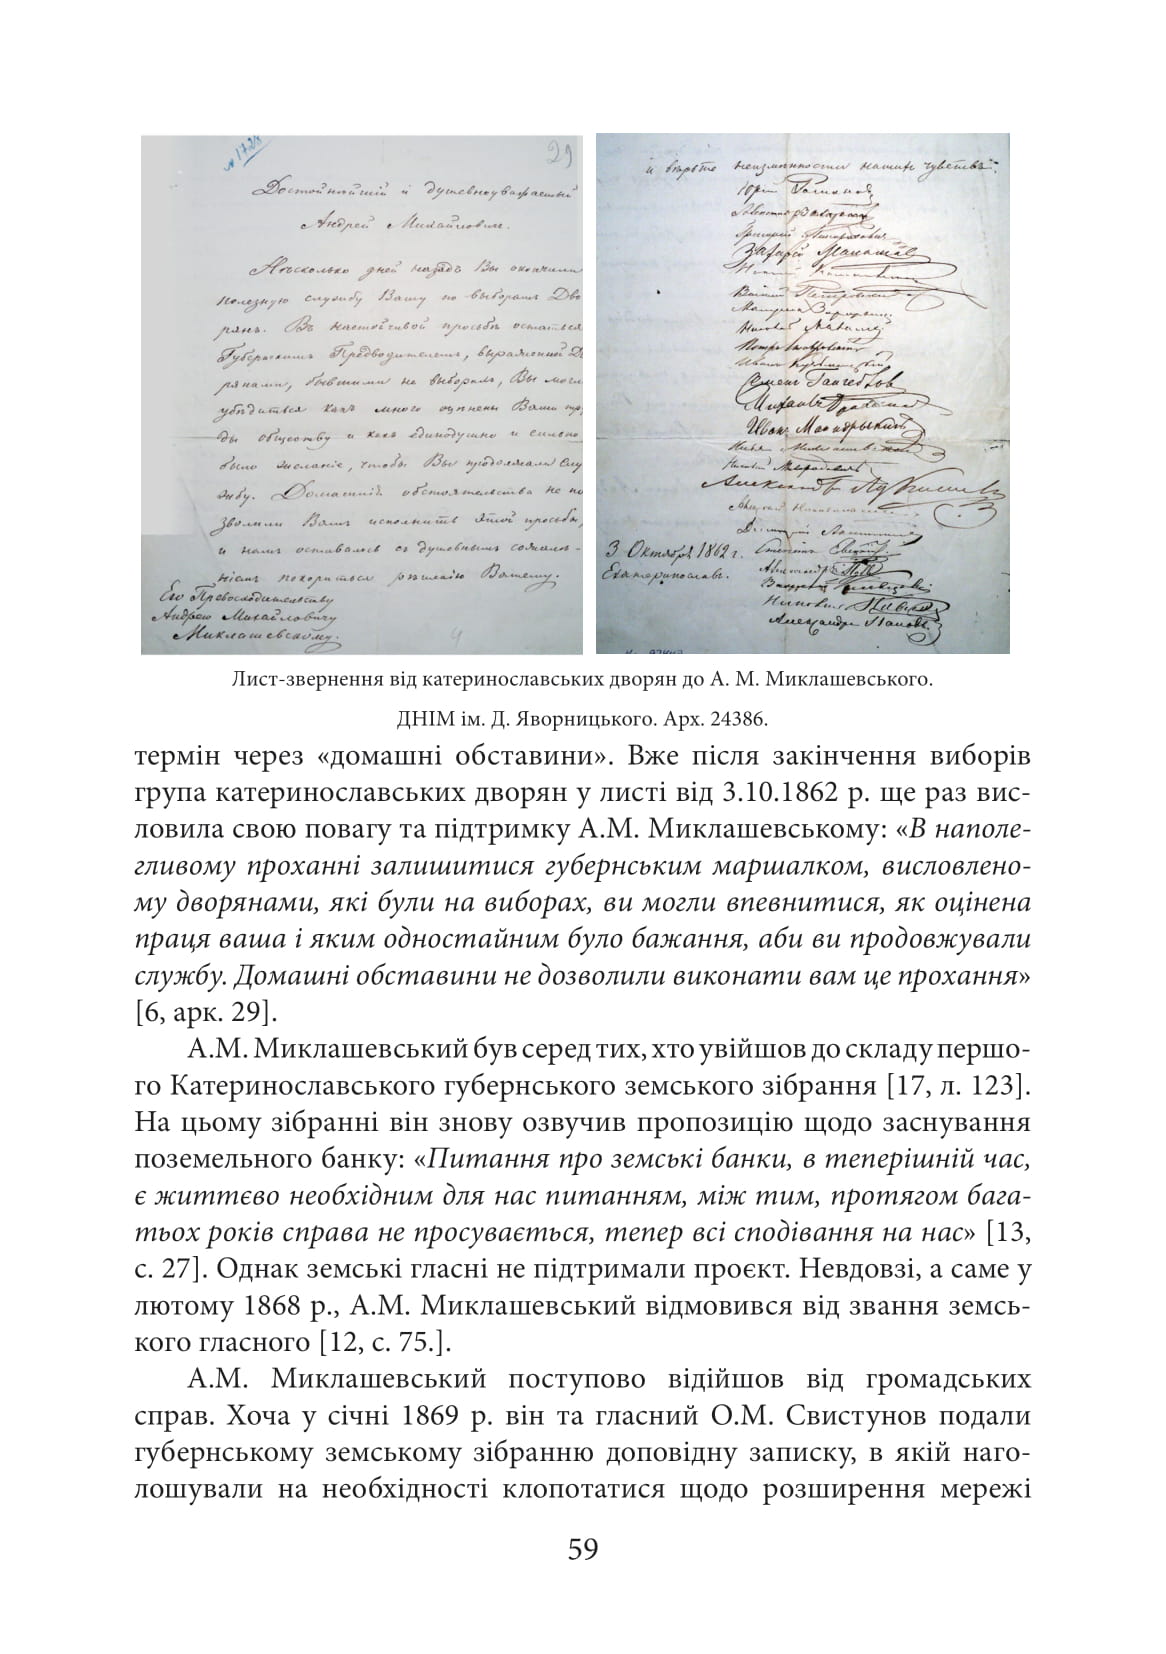 № 1728
29
Достойнѣйшій и душевноуважаемый
Андрей Михайловичъ.
Нѣсколько дней назадъ Вы окончили
полезную службу Вашу по выборамъ Дво
рянъ. Въ настойчивой просьбѣ остаться
Губернскимъ Предводителемъ, выраженной Д
рянами, бывшими на выборахъ, Вы могли
убѣдиться какъ много оцѣнены Ваши тру
ды обществу и какъ единодушно и сильно
было желаніе, чтобы Вы продолжали слу
жбу. Домашнія обстоятельства не по
зволили Вамъ исполнить этой просьбы,
и намъ оставалось съ душевнымъ сожалѣ-
ніемъ покориться рѣшенію Вашему.
Его Превосходительству
Андрею Михайловичу
Миклашевскому.
и вѣрьте неизмѣнности нашихъ чувствъ.
Григорій
Захарій
Иванъ
Семенъ
Михаилъ
Иванъ
Александръ
Дмитрій
3 Октября 1862 г.
Екатеринославъ.
Александръ
Александръ Паповъ
Лист-звернення від катеринославських дворян до А. М. Миклашевського.
ДНІМ ім. Д. Яворницького. Арх. 24386.
термін через «домашні обставини». Вже після закінчення виборів
група катеринославських дворян у листі від 3.10.1862 р. ще раз вис-
ловила свою повагу та підтримку А.М. Миклашевському: «В наполе-
гливому проханні залишитися губернським маршалком, висловлено-
му дворянами, які були на виборах, ви могли впевнитися, як оцінена
праця ваша і яким одностайним було бажання, аби ви продовжували
службу. Домашні обставини не дозволили виконати вам це прохання»
[6, арк. 29].
А.М. Миклашевський був серед тих, хто увійшов до складу першо-
го Катеринославського губернського земського зібрання [17, л. 123].
На цьому зібранні він знову озвучив пропозицію щодо заснування
поземельного банку: «Питання про земські банки, в теперішній час,
є життєво необхідним для нас питанням, між тим, протягом бага-
тьох років справа не просувається, тепер всі сподівання на нас» [13,
с. 27]. Однак земські гласні не підтримали проєкт. Невдовзі, а саме у
лютому 1868 р., А.М. Миклашевський відмовився від звання земсь-
кого гласного [12, с. 75.].
А.М. Миклашевський поступово відійшов від громадських
справ. Хоча у січні 1869 р. він та гласний О.М. Свистунов подали
губернському земському зібранню доповідну записку, в якій наго-
лошували на необхідності клопотатися щодо розширення мережі
59